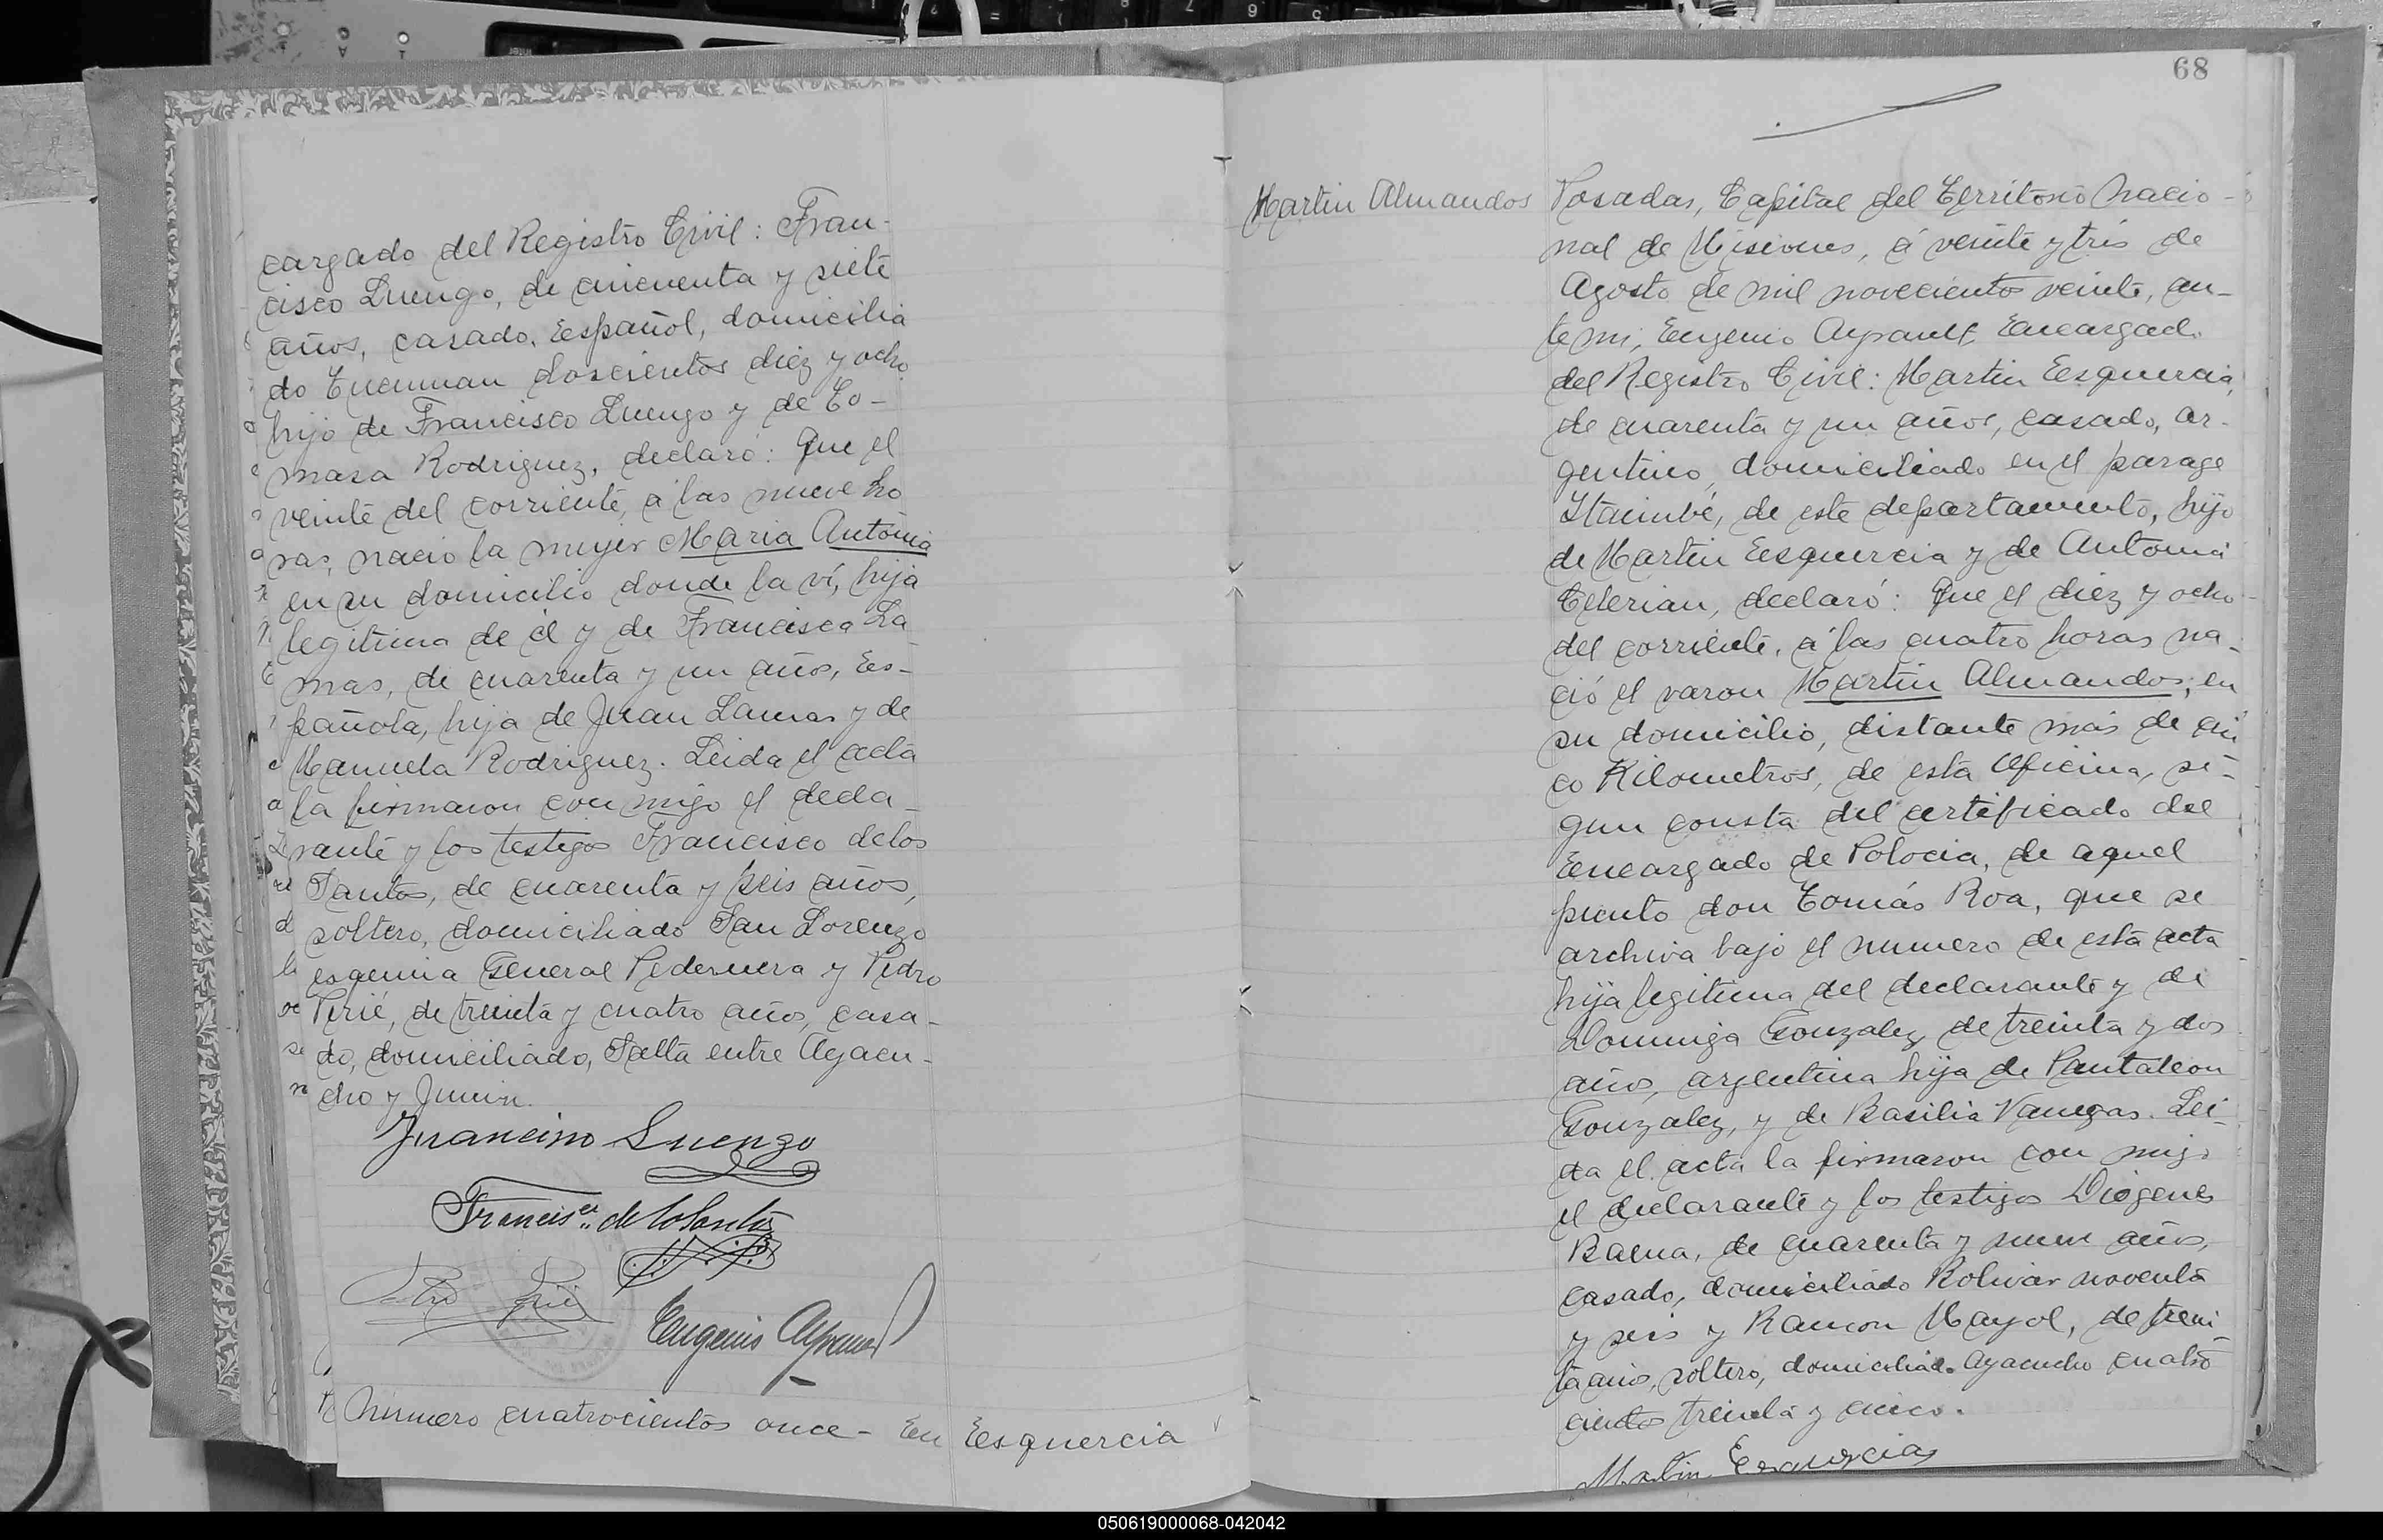 cargado del Registro Civil: Fran-
cisco Luengo, de cincuenta y siete
años, casado, Español, domicilia
do Tucuman doscientos diez y ocho
hijo de Francisco Luengo y de To-
masa Rodriguez, declaró: Que el
veinte del corriente, á las nueve ho
ras, nació la mujer Maria Antonia
en su domicilio donde la ví, hija
legitima de él y de Francisca La
mas, de cuarenta y un años, Es-
pañola, hija de Juan Lamas y de
Manuela Rodriguez. Leida el acta
la firmaron con migo el decla-
rante y los testigos Francisco de los
Santos, de cuarenta y seis años,
soltero, domiciliado San Lorenzo
esquina General Pedernera y Pedro
Perié, de treinta y cuatro años, casa-
do, domiciliado, Salta entre Ayacu-
cho y Junin.
Francisco Luengo
Francisco de los Santos
Pedro Perié
Eugenio Ayrault
Número cuatrocientos once - En Esquercia
68
Martin Almandos
Posadas, Capital del Territorio Nacio-
nal de Misiones, á veinte y tres de
Agosto de mil novecientos veinte, an-
te mi, Eugenio Ayrault Encargado
del Registro Civil: Martin Esquercia,
de cuarenta y un años, casado, ar-
gentino, domiciliado en el parage
Itaimbé, de este departamento, hijo
de Martin Esquercia y de Antonia
declaró: Que el diez y ocho
del corriente, á las cuatro horas na-
ció el varon Martin Almandos, en
su domicilio, distante más de cin
co Kilometros, de esta Oficina, se-
gun consta del certificado del
Encargado de Polocia, de aquel
punto don Tomás Roa, que se
archiva bajo el numero de esta acta
hija legitima del declarante y de
Dominga Gonzalez, de treinta y dos
años, argentina hija de Pantaleon
Gonzalez, y de Basilia Vanegas. Lei-
da el acta la firmaron con migo
el declarante y los testigos Diógenes
Baena, de cuarenta y nueve años,
casado, domiciliado Bolivar noventa
y seis y Ramon Mayol, de trein-
ta años, soltero, domiciliado Ayacucho cuatro
cientos treinta y cinco.
Martin Esquercia
050619000068-042042